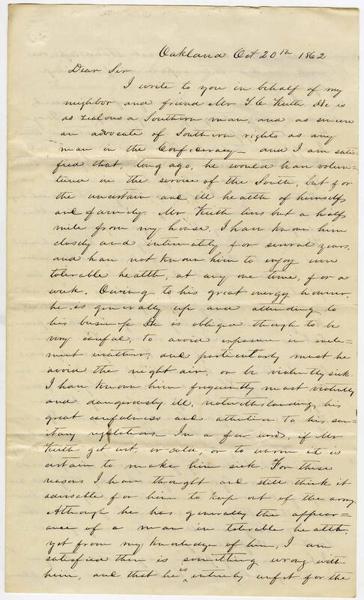 Oakland Oct 20th 1862
Dear Sir
I write to you in behalf of my
neighbor and friend Mr T. C. Keith He is
as zealous a Southern man, and as sincere
an advocate of Southern rights as any
man in the Confederacy - and I am satis-
fied that, long ago, he would have volun-
teered in the service of the South, but for
the uncertain and ill health of himself
and family. Mr Keith lives but a half
mile from my house. I have known him
closely and intimately for several years,
and have not known him to enjoy even
tolerable health, at any one time, for a
week. Owing to his great energy however
he is generally up and attending to
his business He is obliged though to be
very careful, to avoid exposure in incle-
ment weather, and particularly must he
avoid the night air, or be violently sick
I have known him frequently most violently
and dangerously ill, notwithstanding his
great carefulness and attention to his san-
itary regulations. In a few words, if Mr
Keith get wet, or cold, or to warm it is
certain to make him sick. For these
reasons I have thought and still think it
advisable for him to keep out of the army
Although he has generally the appear-
ance of a man in tolerable health,
yet from my knowledge of him, I am
satisfied there is something wrong with
him, and that he is entirely unfit for the